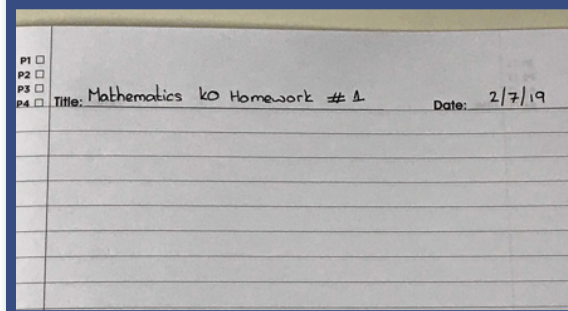 P1 □
P2 □
P3 □
P4 □
Title: Mathematics KO Homework # 1 Date: 2/7/19